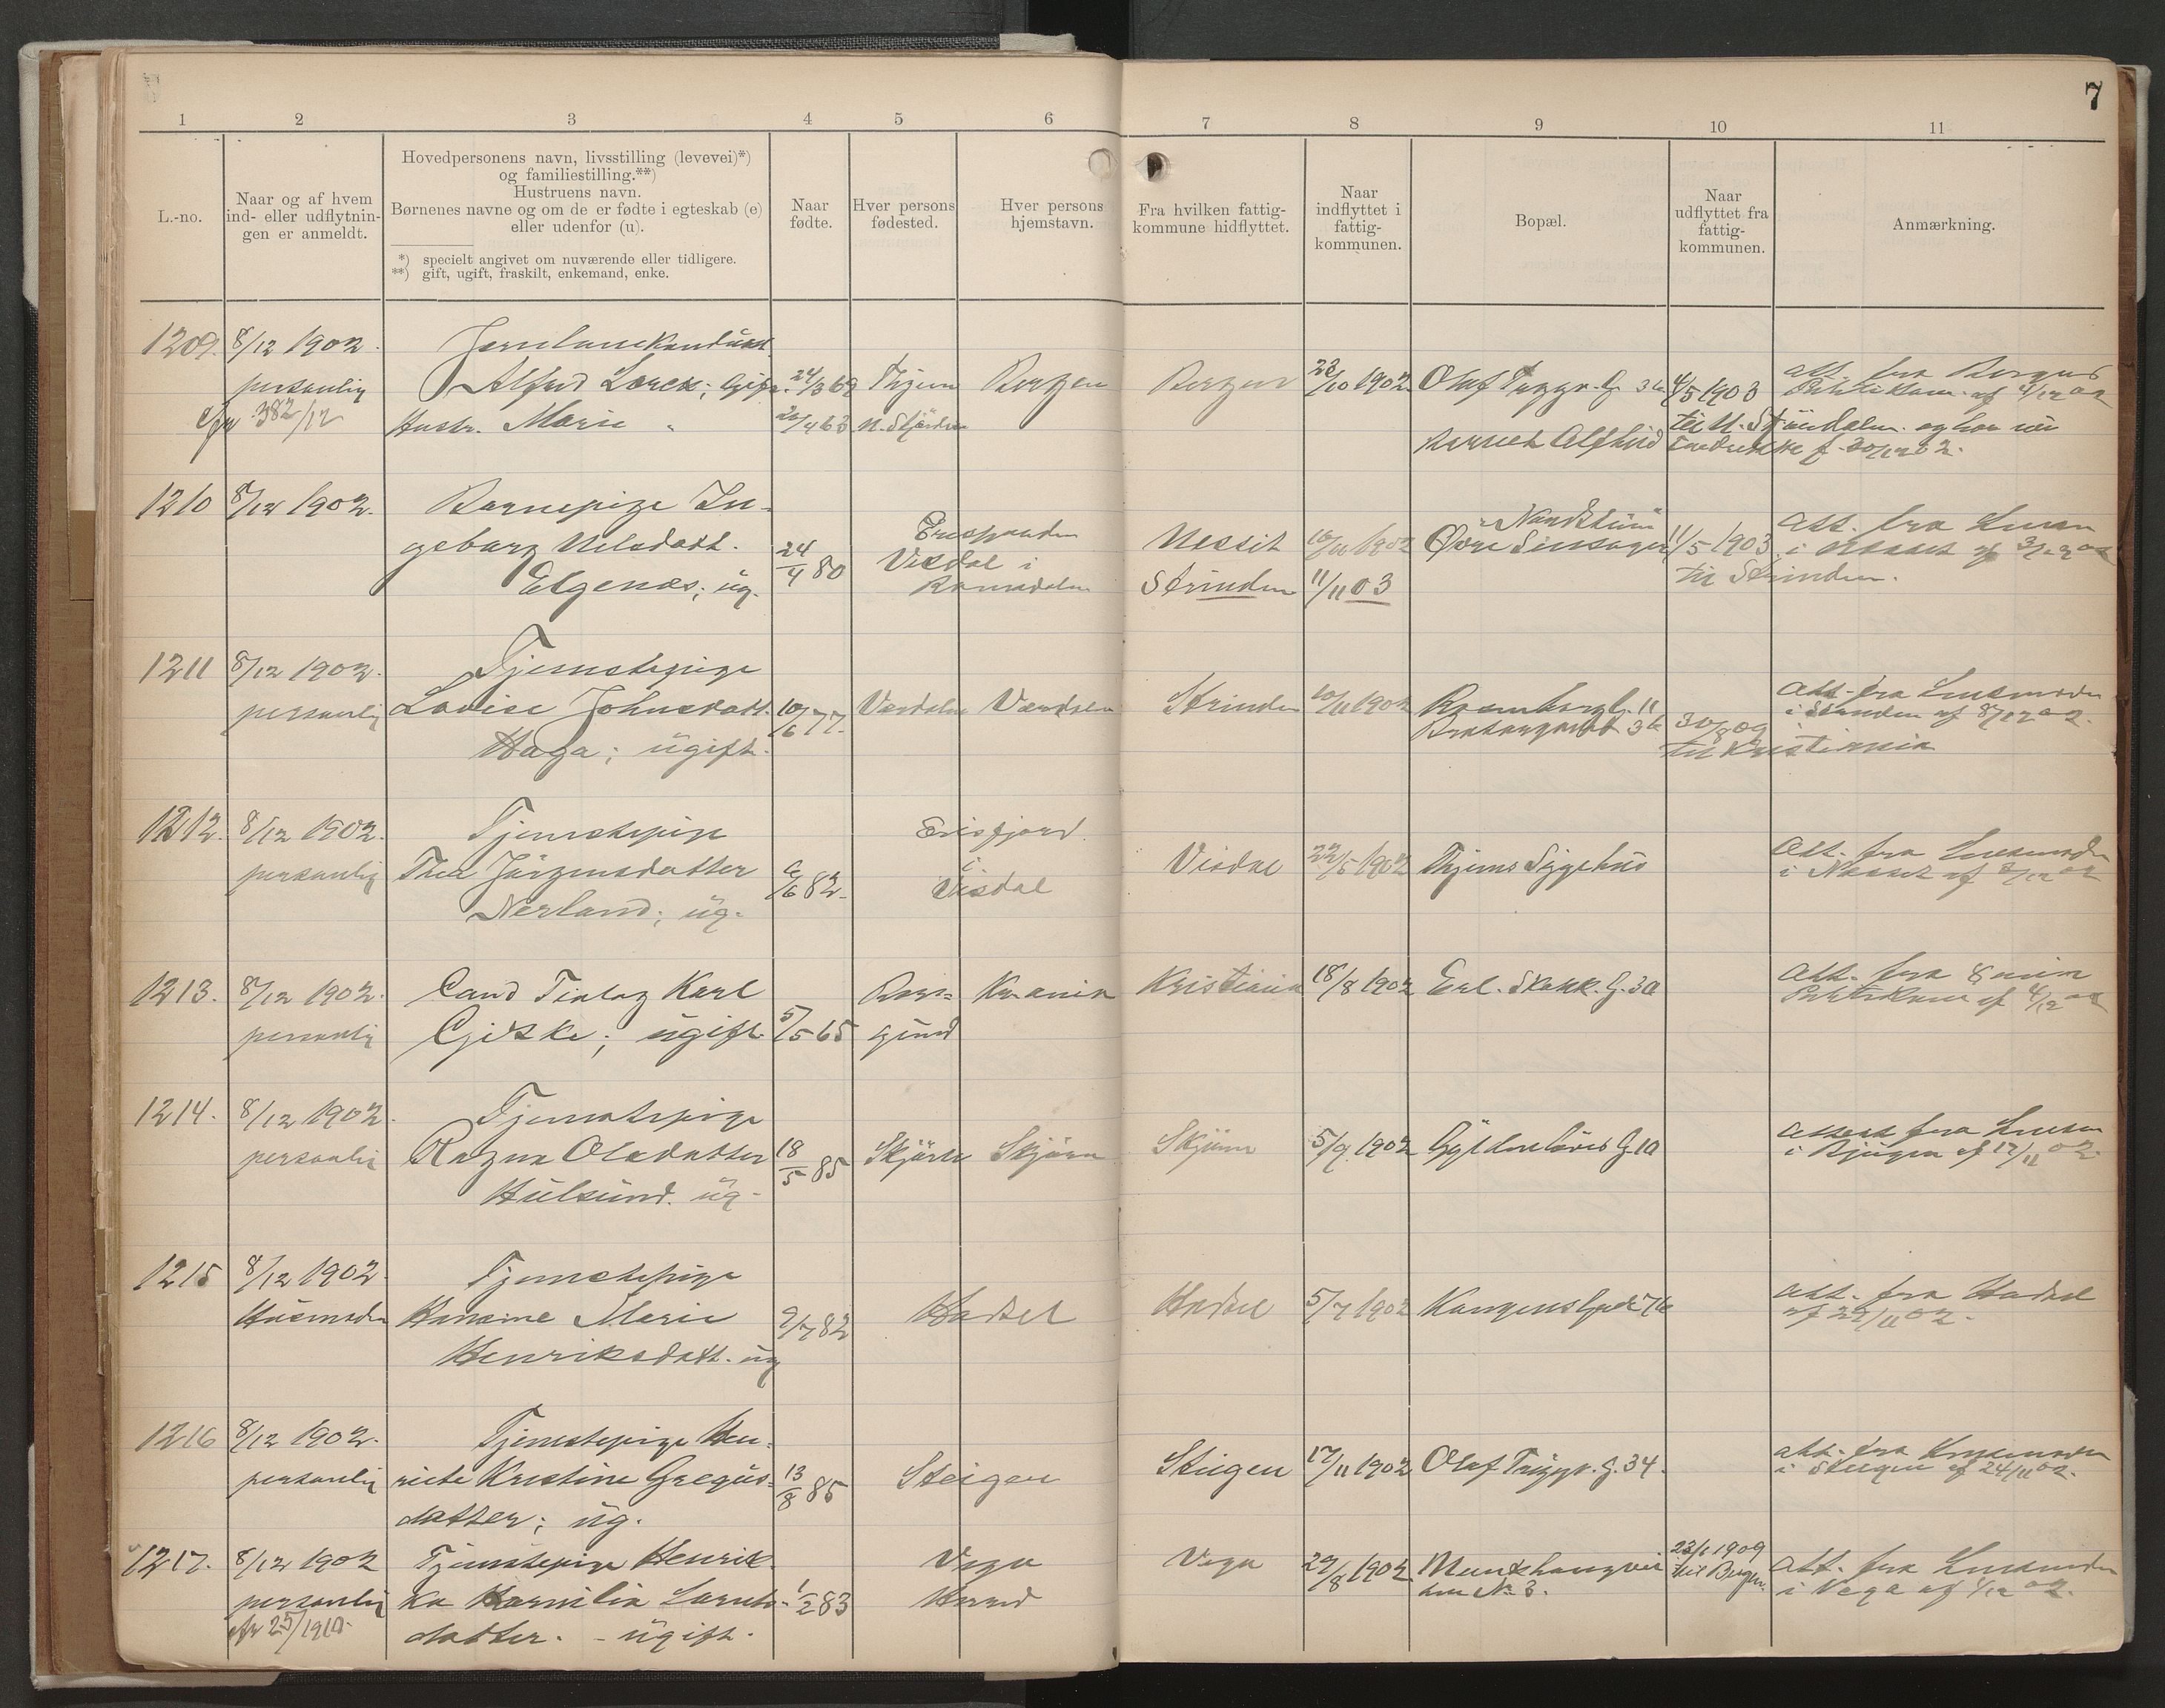 7
1 2 3 4 5 6 7 8 9 10 11
L.-no.
Naar og af hvem
ind- eller udflytnin-
gen er anmeldt.
Hovedpersonens navn, livsstilling (levevei)*)
og familiestilling.**)
Hustruens navn.
Børnenes navne og om de er fødte i egteskab (e)
eller udenfor (u).
*) specielt angivet om nuværende eller tidligere.
**) gift, ugift, fraskilt, enkemand, enke.
Naar
fødte.
Hver persons
fødested.
Hver persons
hjemstavn.
Fra hvilken fattig-
kommune hidflyttet.
Naar
indflyttet i
fattig-
kommunen.
Bopæl.
Naar
udflyttet fra
fattig-
kommunen.
Anmærkning.
1209. 8/12 1902.
personlig Alfred Lorck; gift. 24/3 69 Thjem Bergen Bergen 1902 Olaf Tryggv. G. 4/5 1903 att. fra Bergens
382/12 Hustr. Marie " 63 N. Stjørdalen af 4/12 02
til N. Stjørdalen
Barnet
1210 8/12 1902. Barnepige In-
geborg Nilsdatt. 24/4 80 Nessit 1902 Øvre 11/5 1903 Att. fra
Visdal i i Nesset af 3/12 02
Elgenes; ug. Romsdalen Strinden 11/11 03 til Strinden.
1211 8/12 1902. Tjenestepige
personlig Lovise Johnsdatt. 10/6 77. Værdalen Værdalen Strinden 1902 Rosenborg G. 11 Att. fra Lensmanden
i Strinden af 8/12 02.
Haga; ugift. til Kristiania
1212. 8/12 1902. Tjenestepige Erisfjord.
personlig Thea Jørgensdatter 6/6 82. i Visdal 22/5 1902 Thjems Sygehus Att. fra Lensmanden
i Nesset af 8/12 02
Nerland; ug. Visdal
1213. 8/12 1902. Cand Teolog Karl Bor- Kr.ania Kristiania 18/8 1902 Erl. Skakk. G. 3a Att. fra
personlig Gjiske; ugift. 5/5 65 gund af 4/12 02
1214. 8/12 1902. Tjenestepige
personlig Ragna Olsdatter 18/5 85 Skjørn Skjørn Skjørn 5/9 1902 Gyldenløves G. 1a Attest fra Lensm.
i Bjugn af 17/11 02.
Hulsund. ug.
1215 8/12 1902. Tjenestepige
Husmoder Hansine Marie 9/7 82 Hadsel Hadsel 5/7 1902 Kongens Gade att. fra Hadsel
af 22/11 02.
Henriksdatt. ug
1216 8/12 1902. Tjenestepige Hen-
personlig riete Kristine Gregus- 13/8 85 Steigen Steigen 17/11 1902 Olaf Tryggv. G. 34. att. fra Lensmanden
i Steigen af 24/11 02.
datter; ug.
1217. 8/12 1902 Tjenestepige Henrik- Vega Vega 29/8 1902 Munkhaugvei 23/1 1909 Att. fra Lensmanden
personlig ka Kornilia Larnts- 1/2 83 Herred No 3. til Bergen. i Vega af 1/12 02.
cfr 25/1910. datter. - ugift.